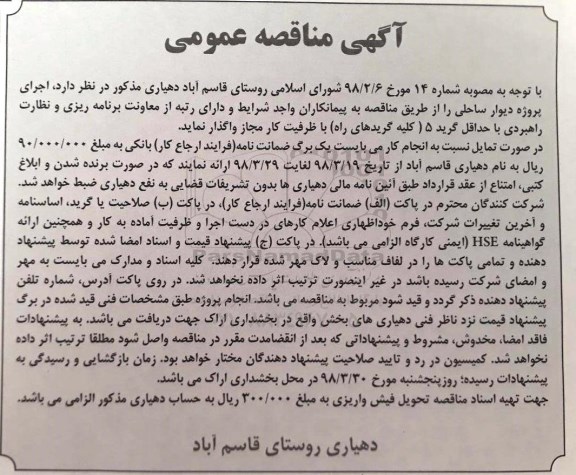 آگهی مناقصه عمومی
با توجه به مصوبه شماره ۱۴ مورخ ۹۸/۲/۶ شورای اسلامی روستای قاسم آباد دهیاری مذکور در نظر دارد، اجرای
پروژه دیوار ساحلی را از طریق مناقصه به پیمانکاران واجد شرایط و دارای رتبه از معاونت برنامه ریزی و نظارت
راهبردی با حداقل گرید ۵ ( کلیه گریدهای راه) با ظرفیت کار مجاز واگذار نماید.
در صورت تمایل نسبت به انجام کار می بایست یک برگ ضمانت نامه(فرایند ارجاع کار) بانکی به مبلغ ۹۰/۰۰۰/۰۰۰
ریال به نام دهیاری قاسم آباد از تاریخ ۹۸/۳/۱۹ لغایت ۹۸/۳/۲۹ ارائه نمایند که در صورت برنده شدن و ابلاغ
کتبی، امتناع از عقد قرارداد طبق آئین نامه مالی دهیاری ها بدون تشریفات قضایی به نفع دهیاری ضبط خواهد شد.
شرکت کنندگان محترم در پاکت (الف) ضمانت نامه(فرایند ارجاع کار)، در پاکت (ب) صلاحیت یا گرید، اساسنامه
و آخرین تغییرات شرکت، فرم خوداظهاری اعلام کارهای در دست اجرا و ظرفیت آماده به کار و همچنین ارائه
گواهینامه HSE (ایمنی کارگاه الزامی می باشد)، در پاکت (ج) پیشنهاد قیمت و اسناد امضا شده توسط پیشنهاد
دهنده و تمامی پاکت ها را در لفاف مناسب و لاک مهر شده قرار دهند. کلیه اسناد و مدارک می بایست به مهر
و امضای شرکت رسیده باشد در غیر اینصورت ترتیب اثر داده نخواهد شد. در روی پاکت آدرس، شماره تلفن
پیشنهاد دهنده ذکر گردد و قید شود مربوط به مناقصه می باشد. انجام پروژه طبق مشخصات فنی قید شده در برگ
پیشنهاد قیمت نزد ناظر فنی دهیاری های بخش واقع در بخشداری اراک جهت دریافت می باشد. به پیشنهادات
فاقد امضا، مخدوش، مشروط و پیشنهاداتی که بعد از انقضامدت مقرر در مناقصه واصل شود مطلقا ترتیب اثر داده
نخواهد شد. کمیسیون در رد و تایید صلاحیت پیشنهاد دهندگان مختار خواهد بود. زمان بازگشایی و رسیدگی به
پیشنهادات رسیده؛ روزپنجشنبه مورخ ۹۸/۳/۳۰ در محل بخشداری اراک می باشد.
جهت تهیه اسناد مناقصه تحویل فیش واریزی به مبلغ ۳۰۰/۰۰۰ ریال به حساب دهیاری مذکور الزامی می باشد.
دهیاری روستای قاسم آباد